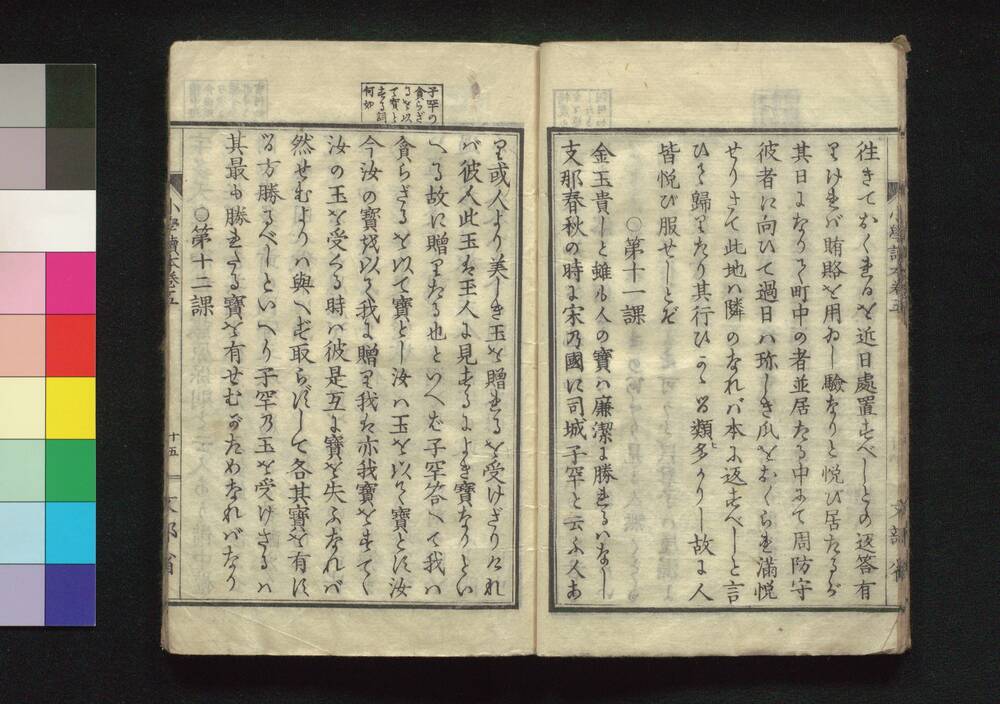 徃きておくれるを近日處置すべしとの返答有
りければ賄賂を用ゐし驗なりと悦び居たるが
其日になりて町中の者並居たる中にて周防守
彼者に向ひて過日ハ珍しき瓜をおくられ滿悦
せりさて此地ハ隣のなれバ本に返すべしと言
ひて歸りたり其行ひかゝる類多かりし故に人
皆悦び服せしとぞ
○第十一課
金玉貴しと雖も人の寶ハ廉潔に勝れるハなし
支那春秋の時に宋乃國に司城子罕と云ふ人あ
文部省
子罕の
貪らざ
るを以
て寶と
する詞
何如
り或人より美しき玉を贈れるを受けざりけれ
バ彼人此玉を玉人に見するによき寶なりとい
へる故に贈りたる也といへば子罕答へて我ハ
貪らざるを以て寶とし汝ハ玉を以て寶とす汝
今汝の寶を以て我に贈り我た亦我寶をすてく
汝の玉を受くる時ハ彼是互に寶を失ふなれバ
然せむよりハ與へず取らずして各其寶を有す
る方勝るべしといへり子罕乃玉を受けざるハ
其最も勝れたる寶を有せむがためなれバなり
○第十二課
小學讀本卷五
十五
文部省